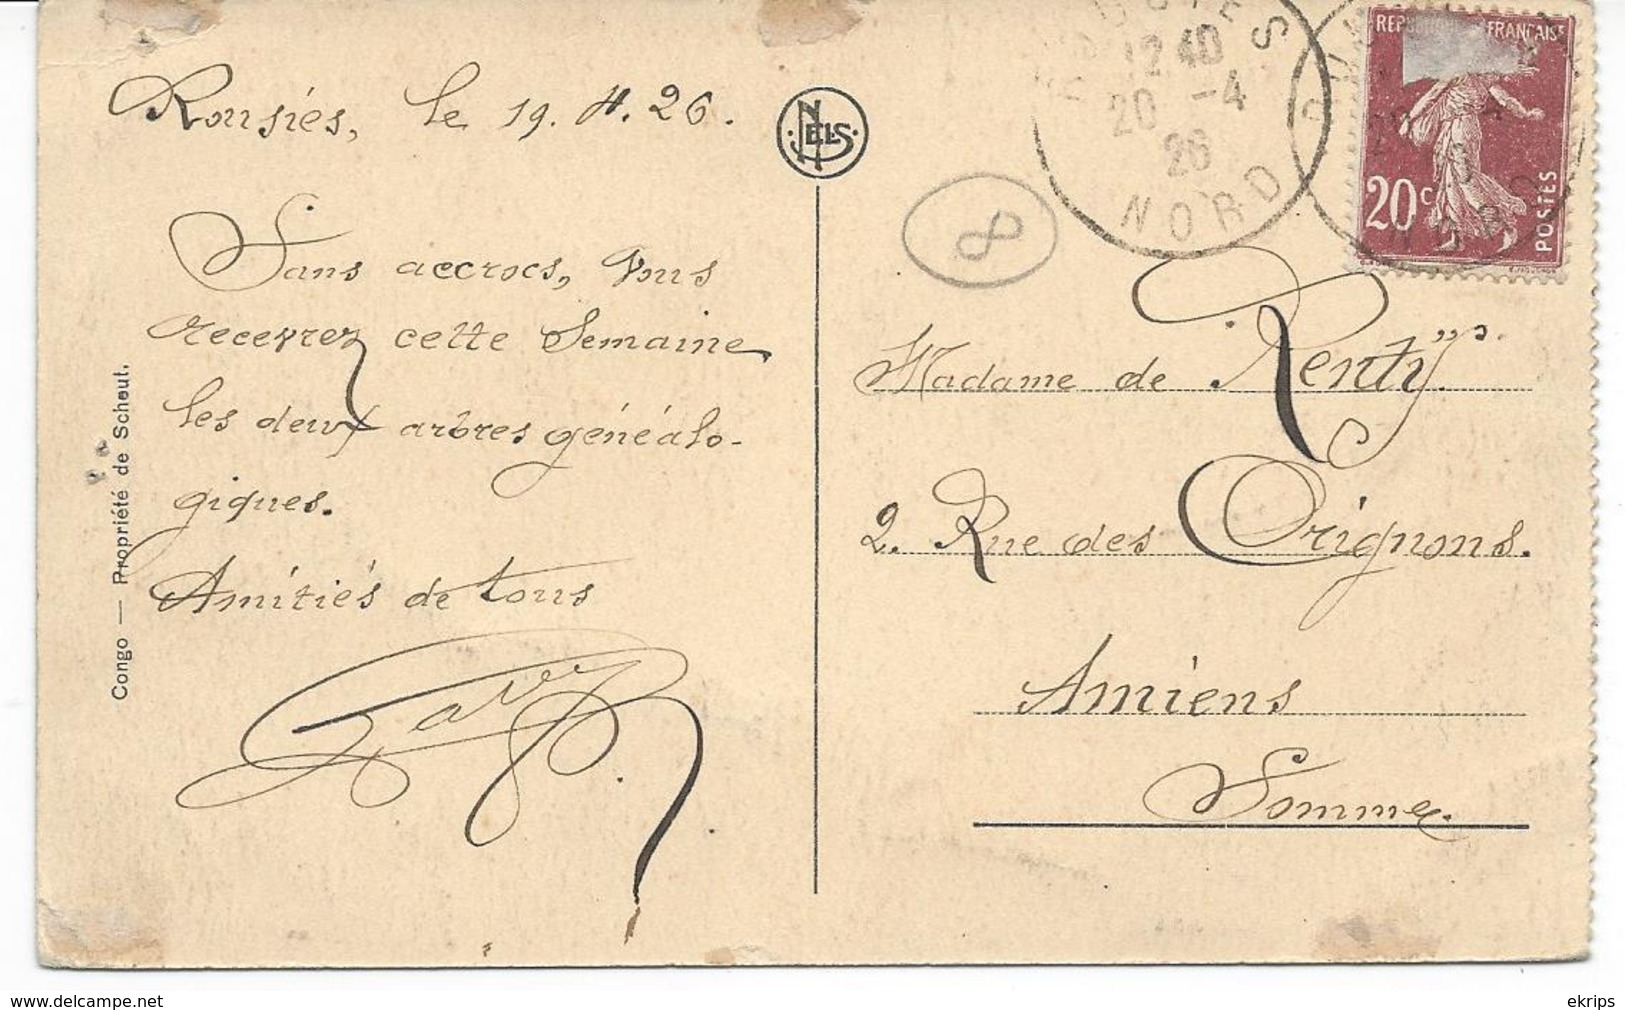 Rousiés, le 19. 4. 26.
Sans accrocs, Vous
recevrez cette Semaine
les deux arbres généalo-
giques.
Amitiés de tous
Congo — Propriété de Scheut.
NELS
8
12 40
20 -4
26
NORD
REPUBLIQUE FRANÇAISE
20c
POSTES
NORD
Madame de Renty.
2. Rue des Orignons.
Amiens
Somme.
delcampe.net
ekrips